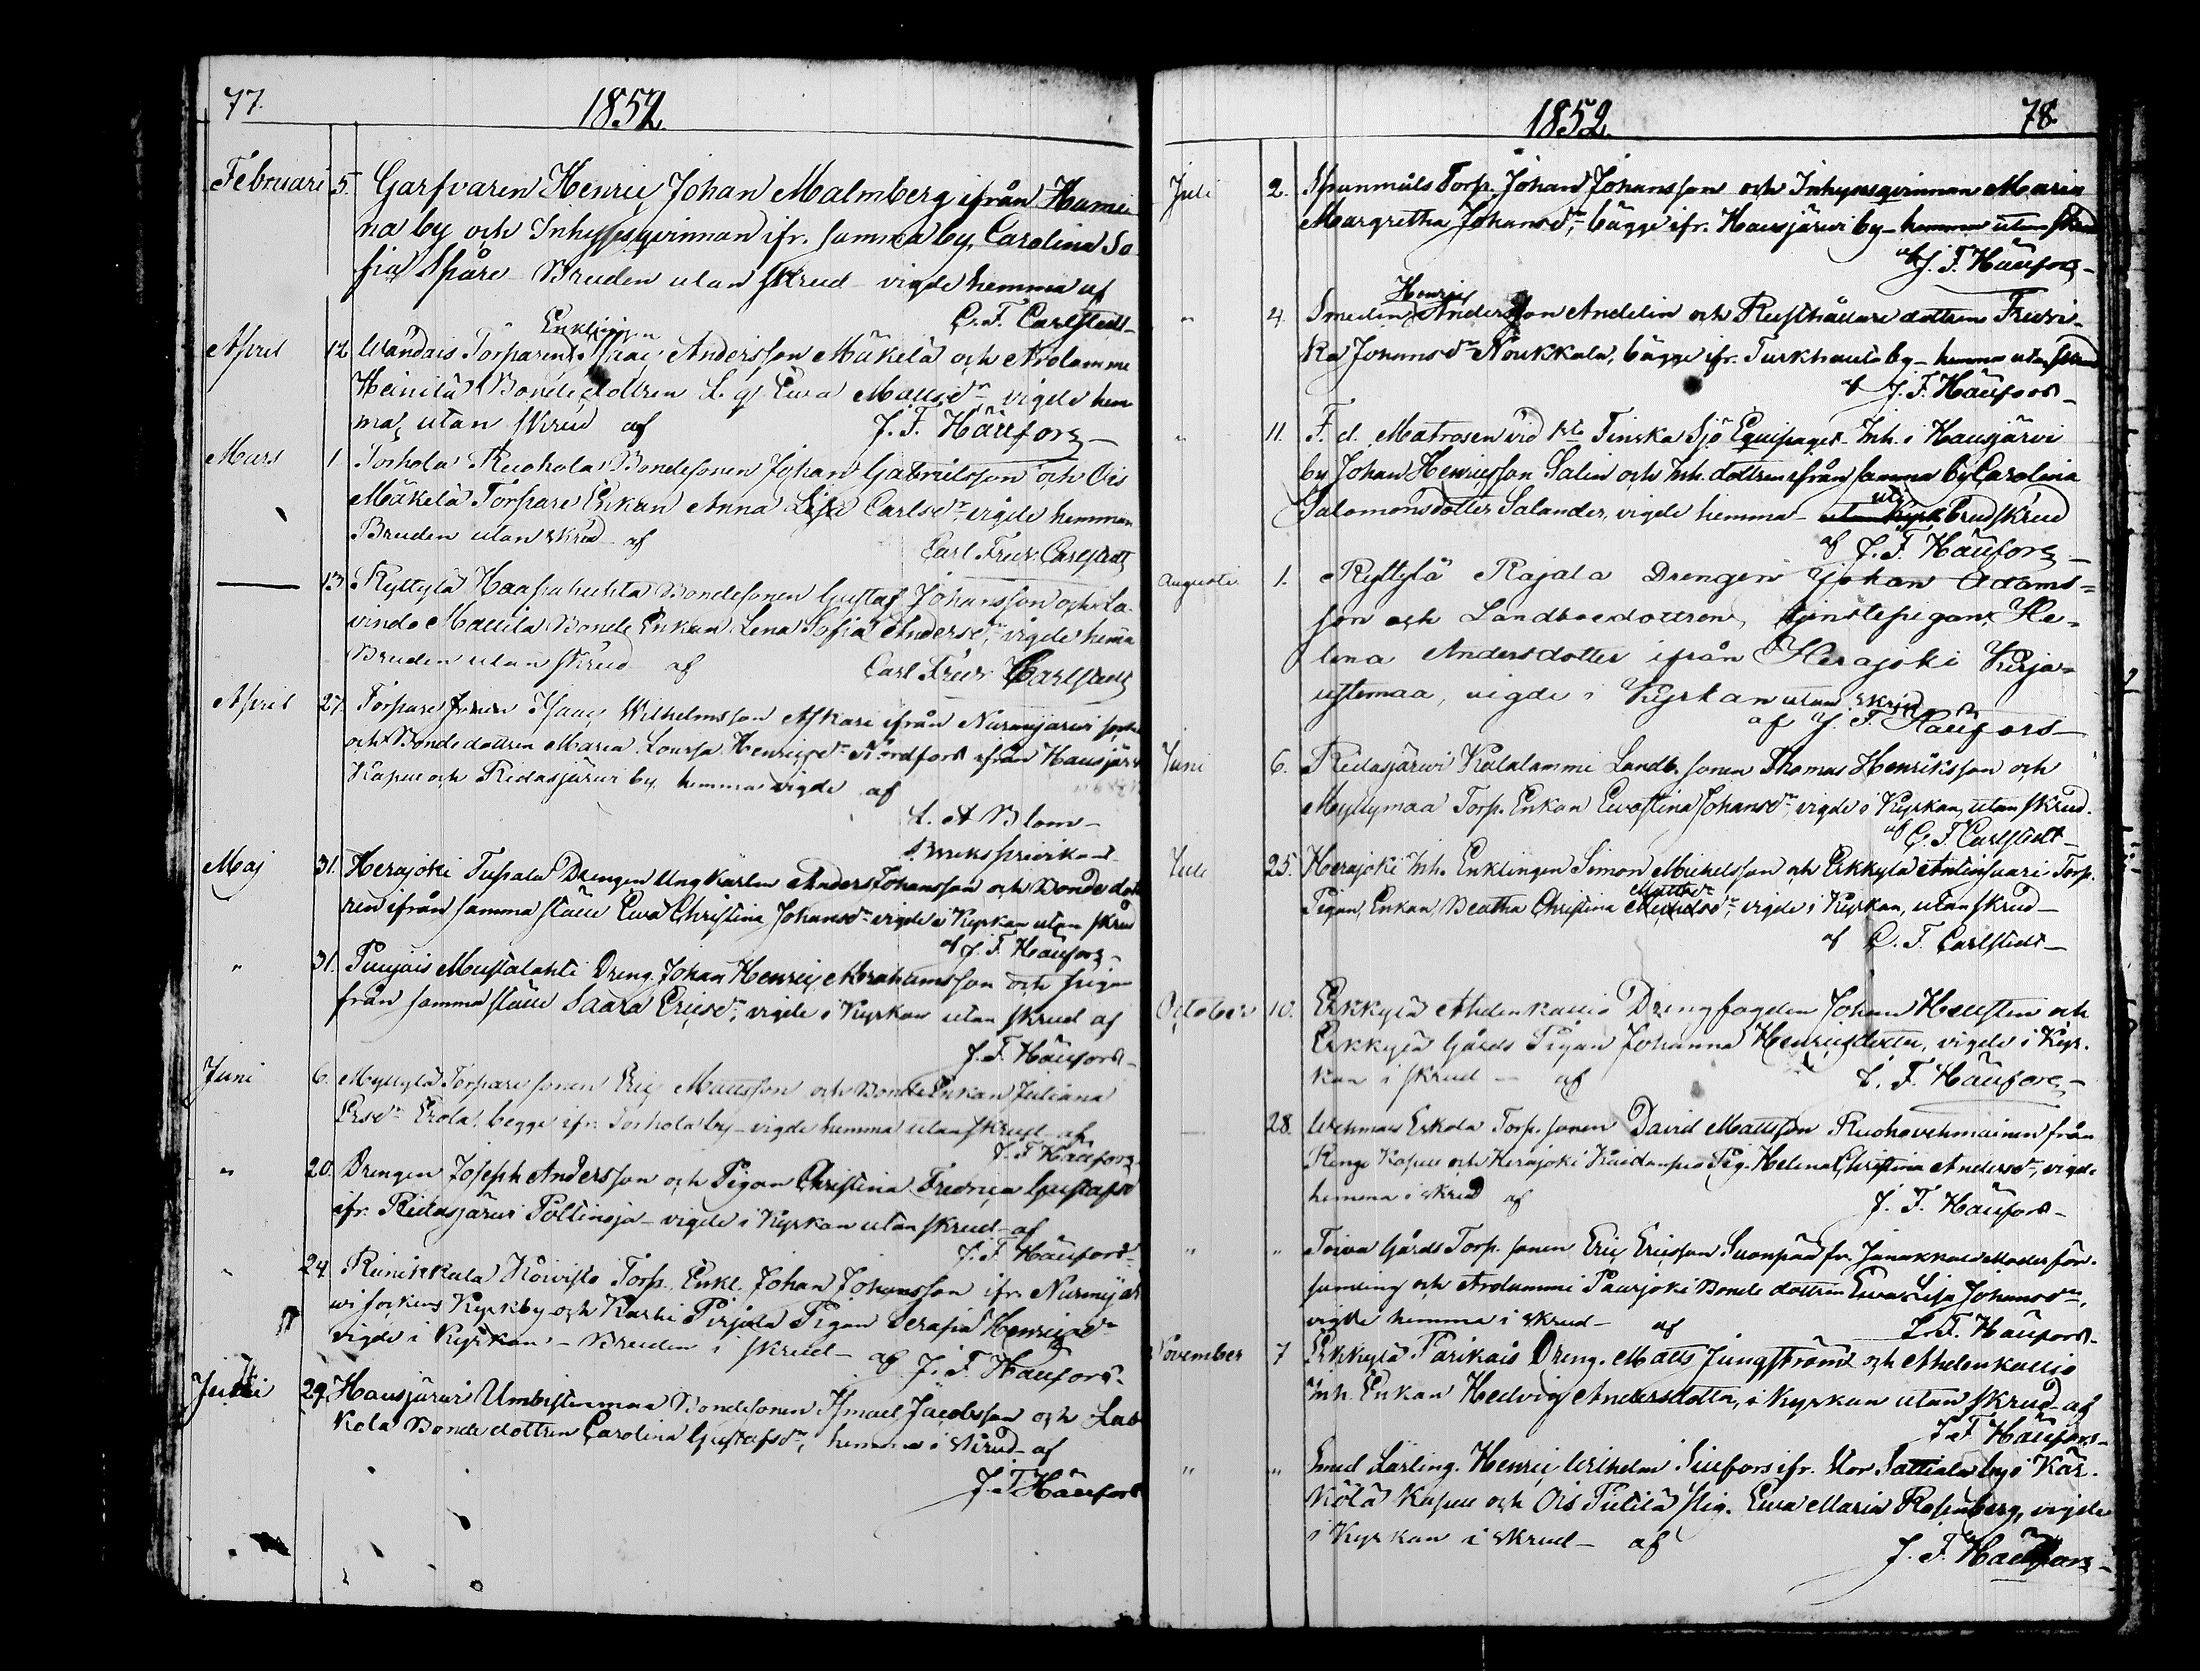 77.
1852.
Februari 5. Garfvaren Henric Johan Malmberg ifrån Hami-
na by och Inhysesqvinnan ifr. samma by, Carolina So-
fia Spåre - Bruden utan skrud - vigde hemma af
C. F. Carlstedt -
Enklingen
April 12 Torparen Isaac Andersson Mäkelä och Arolamme
Heinilä Bondedottren L. q. Ewa Mattsdr, vigde hem
ma, utan skrud af J. F. Häufors -
Mars 1 Torhola Ruohola Bondesonen Johan Gabrielsson och Ois
Mäkelä Torpare Enkan Anna Lisa Carlsdr, vigde hemma
Bruden utan skrud af Carl Fredr. Carlstedt
— 13 Ryttylä Haapahuhta Bondesonen Gustaf Johansson och La-
vinto Mattila Bonde Enkan Lena Sofia Andersdr, vigde hema
Bruden utan skrud af Carl Fredr. Carlstedt
April 27. Torpare sonen Isaac Wilhelmsson Askari ifrån Nurmijärvi sockn
och Bondedottren Maria Lovisa Henricsdr Nordfors ifrån Hausjärvi
Kapell och Ridasjärvi by hemma vigde af
A. Blom -
Maj 31. Herajoki Tupala Drengen Ungkarlen Anders Johansson och Bonde dott
ren ifrån samma ställe Ewa Christina Johansdr vigde i Kyrkan utan skrud
af J. F. Häufors -
" 31. Puujais Mustalahti Dreng. Johan Henric Abrahamsson och pigan
från samma ställe Saara Ericsdr, vigde i Kyrkan utan skrud af
J. F. Häufors -
Juni 6. Myllylä Torpare sonen Eric Mattsson och Bonde Enkan Juliana
Ersdr Erola, begge ifr. Torhola by - vigde hemma utan skrud af
J. F. Häufors
" 20. Drengen Joseph Andersson och Pigan Christina Fredrica Gustafsdr
ifr. Ridasjärvi Pöltinoja - vigde i Kyrkan utan skrud - af
J. F. Häufors -
" 24. Koivisto Torp. Enkl. Johan Johansson ifr. Nurmijär
vi sockens Kyrkby och Karhi Pirjala Pigan Serafia Henricsdr
vigde i Kyrkan - Bruden i skrud - af J. F. Häufors -
29. Hausjärvi Umbistenmaa Bondesonen Ismael Jacobsson och Lab
kola Bonde dottren Carolina Gustafsdr, hemma i skrud - af
J. F. Häufors
1852.
78.
Juli 2. Torp. Johan Johansson och Inhysesqvinnan Maria
Margretha Johansdr, bägge ifr. Hausjärvi by - hemma utan skrud
af J. F. Häufors -
Henric
" 4. Smeden Andersson Andelin och Rusthållare dottren Fredri-
ka Johansdr Noukkala, bägge ifr. Turkhauta by - hemma utan skrud
af J. F. Häufors -
" 11. F. d. Matrosen vid 1sta Finska Sjö Equipaget - Inh. i Hausjärvi
by Johan Henricsson Salin och Inh. dottren ifrån samma by Carolina
Salomonsdotter Salander, vigde hemma - utan brudskrud
af J. F. Häufors -
Augusti 1. Ryttylä Rajala Drengen Johan Adams-
son och Landboedottren, tjenstepigan, He-
lena Andersdotter ifrån Herajoki Kirja-
ustemaa, vigde i Kyrkan utan skrud
af J. F. Häufors -
Juni 6. Ridasjärvi Kalalammi Landb. sonen Thomas Henriksson och
Myllymaa Torp. Enkan Ewastina Johansdr, vigde i Kyrkan, utan skrud.
af C. F. Carlstedt -
Juli 25. Herajoki Inh. Enklingen Simon Michelsson och Erkkylä Antinsaari Torp.
Mattsdr
Pigan, Enkan, Beatha Christina, vigde i Kyrkan, utan skrud -
af C. F. Carlstedt -
October 10. Erkkylä Ahdenkallio Drengfogden Johan Hellsten och
Erkkylä Gårds Pigan Johanna Henricsdotter, vigde i Kyr-
kan i skrud - af J. F. Häufors -
28. Wehmais Eskola Torp. sonen David Mattsson Ruohovehmainen från
Renge Kapell och Herajoki Kuidanpää Pig. Helena Christina Andersdr, vigde
hemma i skrud af J. F. Häufors -
" " Toiva Gårds Torp. sonen Eric Ericsson Suonpää fr. Janakkala Moderför-
samling och Arolammi Paurjoki Bonde dottren Ewa Lisa Johansdr,
vigde hemma i skrud - af J. F. Häufors -
November 7 Erkkylä Parikais Dreng. Matts Jungström och Ahdenkallio
Inh. Enkan Hedvig Andersdotter, i Kyrkan utan skrud - af
J. F. Häufors -
" " Smed Lärling. Henric Wilhelm Silfors ifr. Stor Sattiala by i Kär-
kölä Kapell och Ois Pietilä Pig. Ewa Maria Rosenberg, vigde
i Kyrkan i skrud - af
J. F. Häufors -